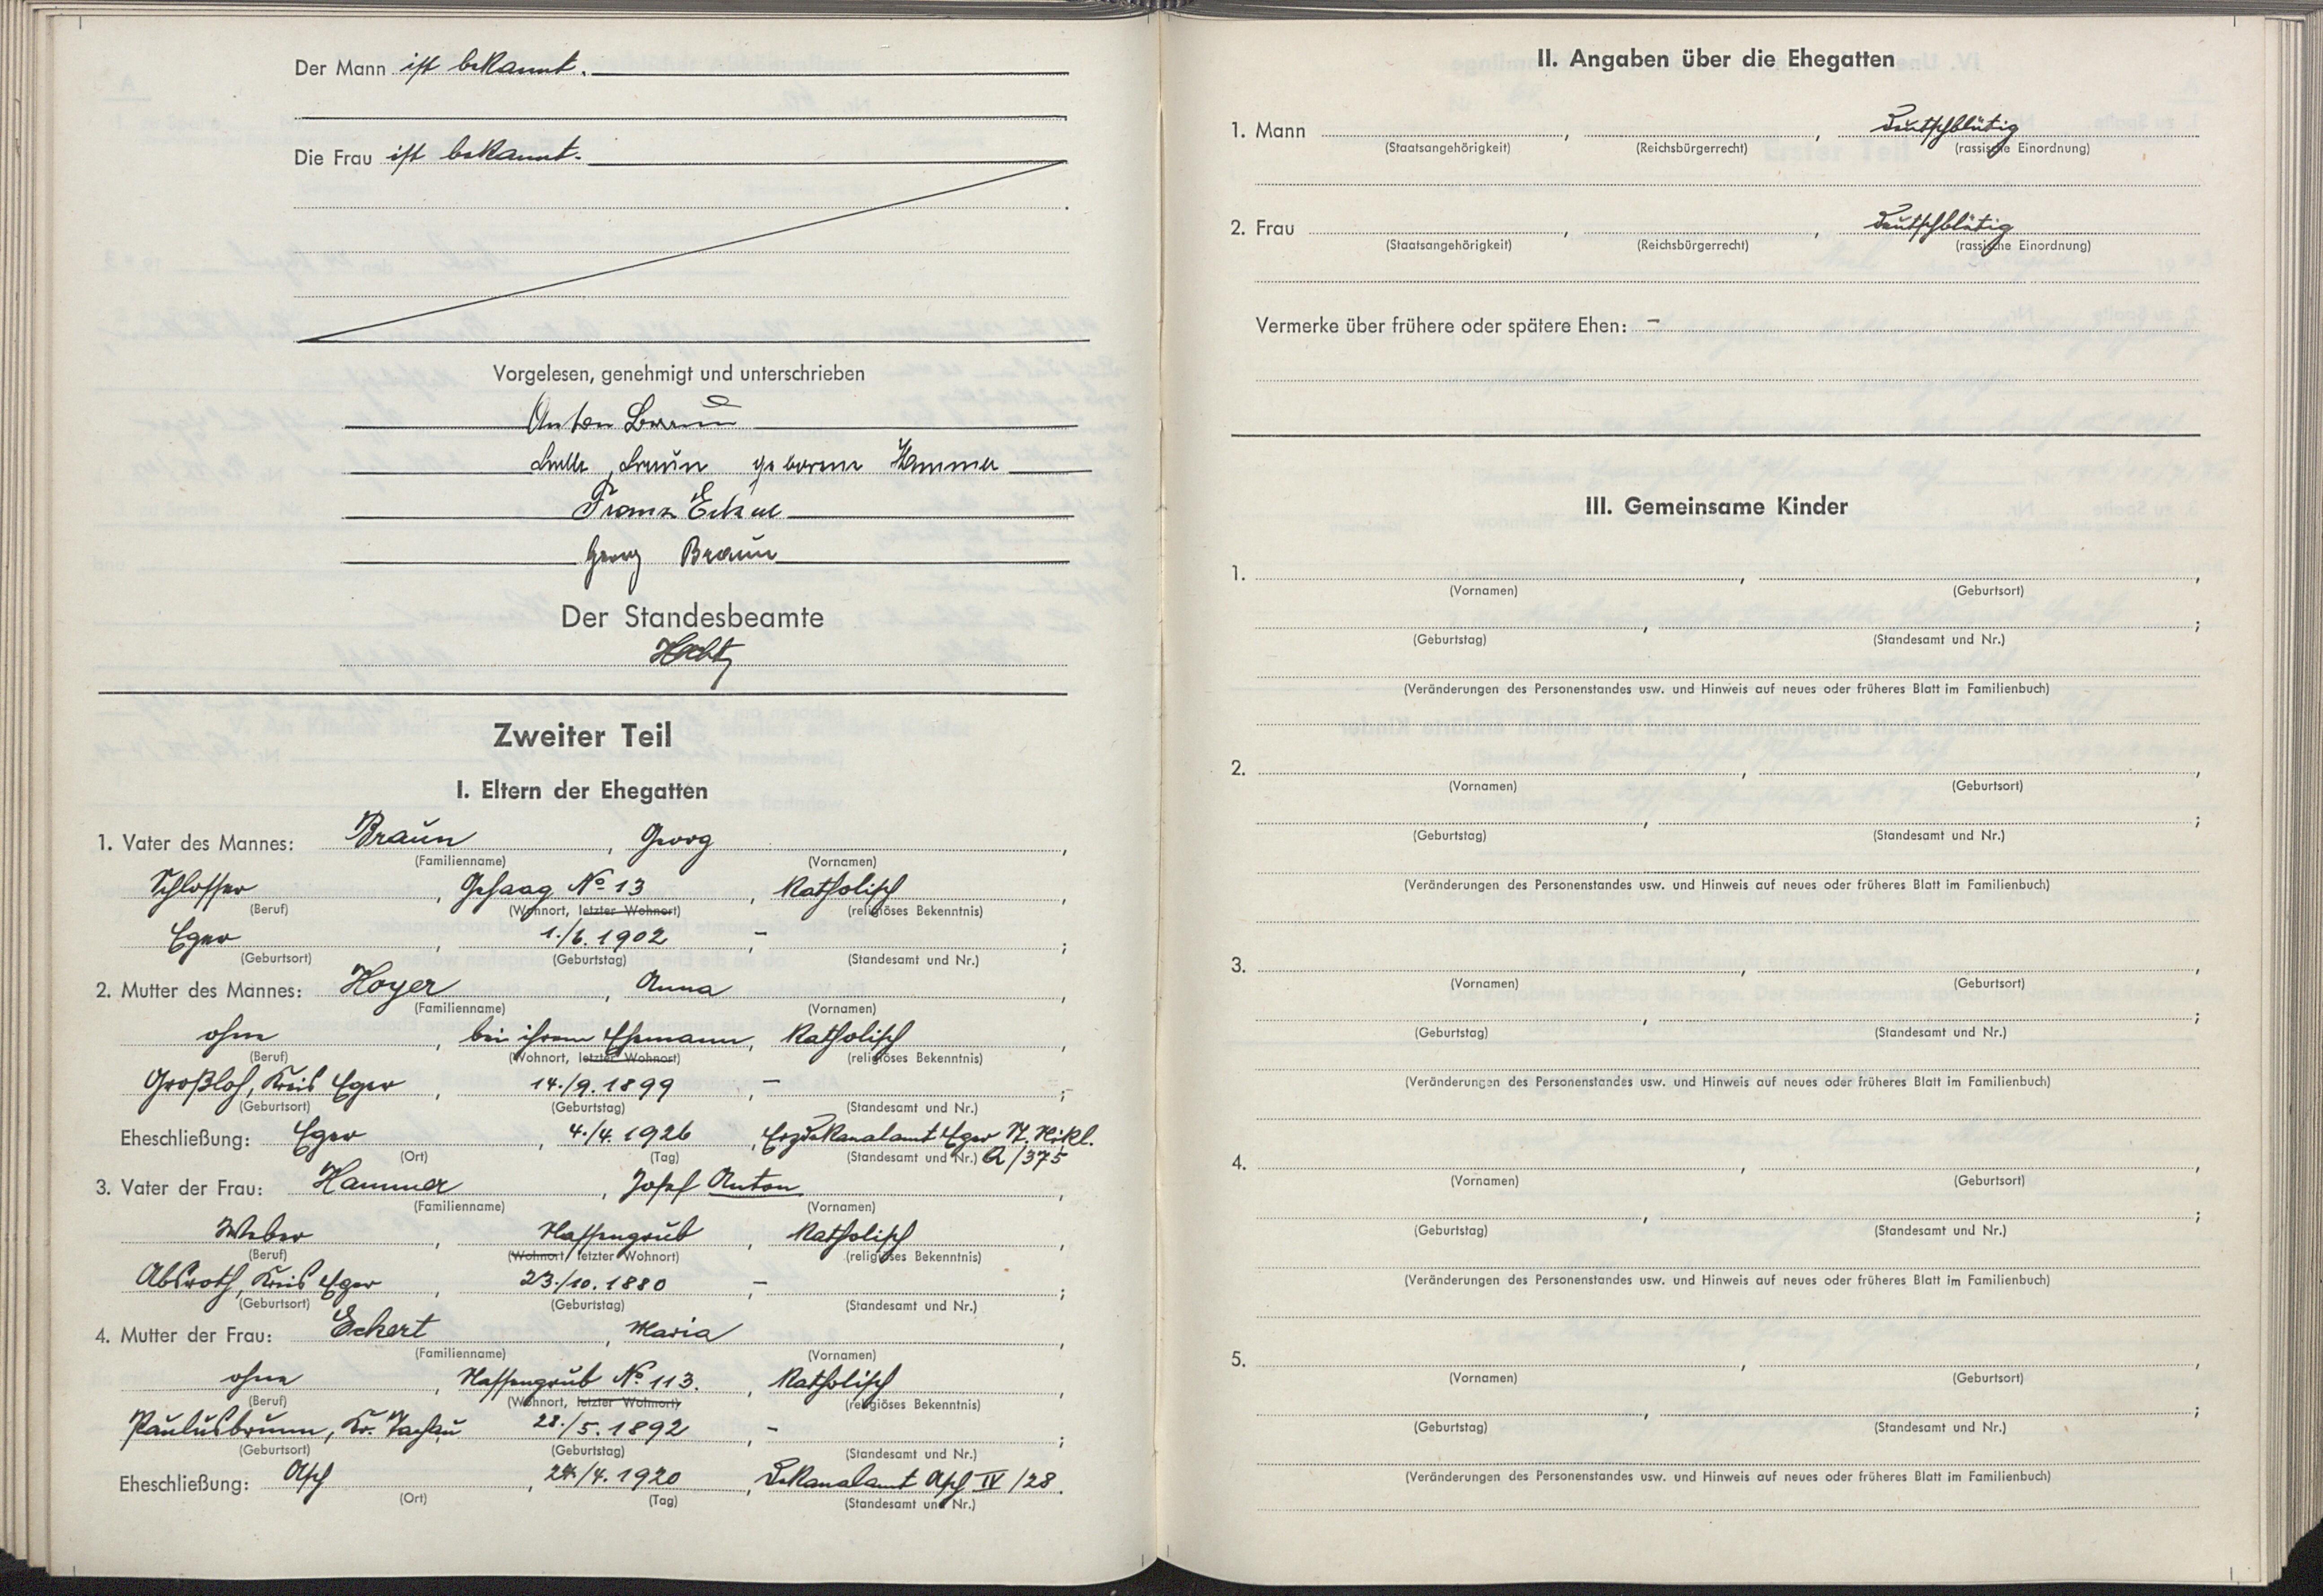 Der Mann ist bekannt.
Die Frau ist bekannt.
Vorgelesen, genehmigt und unterschrieben
Anton Braun
Braun geborene Hammer
Franz
Georg Braun
Der Standesbeamte
Zweiter Teil
I. Eltern der Ehegatten
1. Vater des Mannes: Braun, Georg,
(Familienname) (Vornamen)
Schlosser, Gehaag No 13, Katholisch,
(Beruf) (Wohnort, letzter Wohnort) (religiöses Bekenntnis)
Eger, 1./6. 1902, - ;
(Geburtsort) (Geburtstag) (Standesamt und Nr.)
2. Mutter des Mannes: Hoyer, Anna,
(Familienname) (Vornamen)
ohne, bei ihrem Ehemann, Katholisch,
(Beruf) (Wohnort, letzter Wohnort) (religiöses Bekenntnis)
Großloh, Kreis Eger, 14./9. 1899, - ;
(Geburtsort) (Geburtstag) (Standesamt und Nr.)
Eheschließung: Eger, 4./4. 1926, Erzdekanalamt Eger
(Ort) (Tag) (Standesamt und Nr.) A/375
3. Vater der Frau: Hammer, Josef Anton,
(Familienname) (Vornamen)
Weber, Hassengrub, Katholisch,
(Beruf) (Wohnort, letzter Wohnort) (religiöses Bekenntnis)
Absroth, Kreis Eger, 23./10. 1880, - ;
(Geburtsort) (Geburtstag) (Standesamt und Nr.)
4. Mutter der Frau: Eckert, Maria,
(Familienname) (Vornamen)
ohne, Hassengrub No 113., Katholisch,
(Beruf) (Wohnort, letzter Wohnort) (religiöses Bekenntnis)
Paulusbrunn, Kr. Tachau 28./5. 1892, - ;
(Geburtsort) (Geburtstag) (Standesamt und Nr.)
Eheschließung: Asch, 24./4. 1920, Dekanalamt Asch IV/28.
(Ort) (Tag) (Standesamt und Nr.)
II. Angaben über die Ehegatten
1. Mann , , Deutschblütig
(Staatsangehörigkeit) (Reichsbürgerrecht) (rassische Einordnung)
2. Frau , , Deutschblütig
(Staatsangehörigkeit) (Reichsbürgerrecht) (rassische Einordnung)
Vermerke über frühere oder spätere Ehen: -
III. Gemeinsame Kinder
1. , ,
(Vornamen) (Geburtsort)
, ;
(Geburtstag) (Standesamt und Nr.)
(Veränderungen des Personenstandes usw. und Hinweis auf neues oder früheres Blatt im Familienbuch)
2. , ,
(Vornamen) (Geburtsort)
, ;
(Geburtstag) (Standesamt und Nr.)
(Veränderungen des Personenstandes usw. und Hinweis auf neues oder früheres Blatt im Familienbuch)
3. , ,
(Vornamen) (Geburtsort)
, ;
(Geburtstag) (Standesamt und Nr.)
(Veränderungen des Personenstandes usw. und Hinweis auf neues oder früheres Blatt im Familienbuch)
4. , ,
(Vornamen) (Geburtsort)
, ;
(Geburtstag) (Standesamt und Nr.)
(Veränderungen des Personenstandes usw. und Hinweis auf neues oder früheres Blatt im Familienbuch)
5. , ,
(Vornamen) (Geburtsort)
, ;
(Geburtstag) (Standesamt und Nr.)
(Veränderungen des Personenstandes usw. und Hinweis auf neues oder früheres Blatt im Familienbuch)